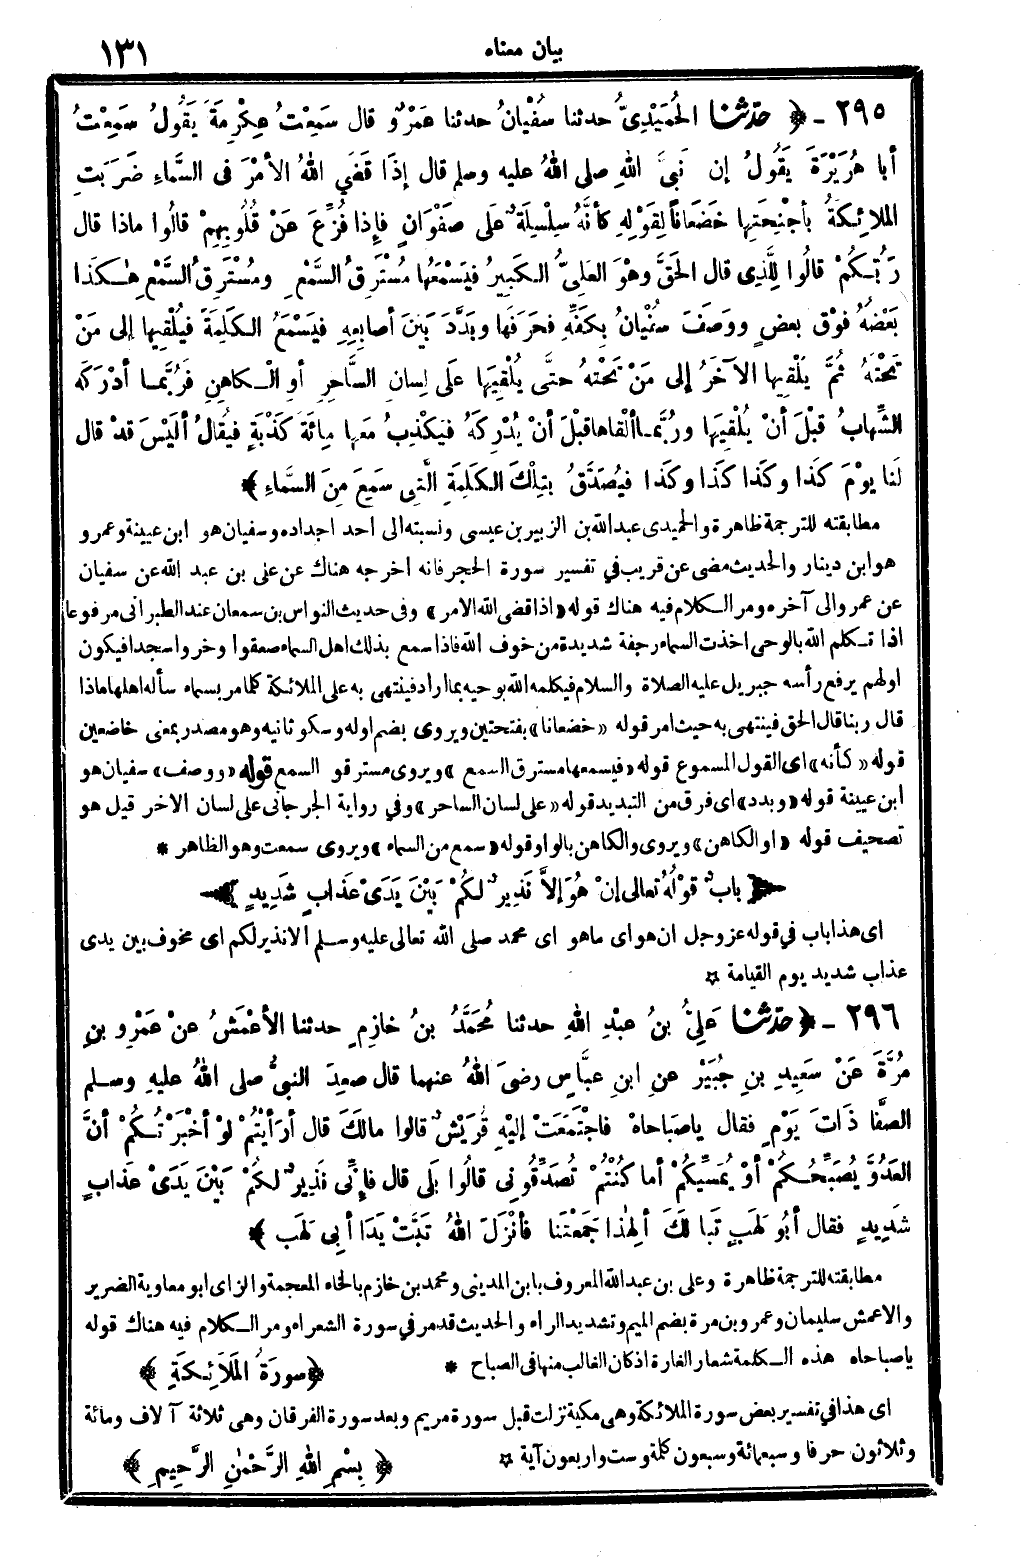 ١٣١
بيان معناه
٢٩٥ - ﴿ حدثنا الحُمَيْدِىُّ حدثنا سُفْيَانُ حدثنا عَمْرٌو قال سَمِعْتُ عِكْرِمَةَ يَقُولُ سَمِعْتُ
أبا هُرَيْرَةَ يَقُولُ إن نَبِىَّ اللهِ صلى اللهُ عليه وسلم قال إِذَا قَضَي اللهُ الأمْرَ فى السَّماءِ ضَرَبَتِ
الملائِكَةُ بأجْنِحَتِها خَضَعَاناً لِقَوْلِهِ كأنَّهُ سِلْسِلَةٌ عَلَى صَفْوَانٍ فإِذا فُزِّعَ عَنْ قُلُوبِهِمْ قالُوا ماذا قال
رَبُّكُمْ قالُوا لِلَّذِى قال الحَقَّ وهْوَ العَلِىُّ الكَبِيرُ فيَسْمَعُها مُسْتَرِقُ السَّمْعِ ومُسْتَرِقُ السَّمْعِ هٰكَذا
بَعْضُهُ فوْقَ بعضٍ ووَصَفَ سُفْيانُ بِكَفِّهِ فحَرَفَها وبَدَّدَ بَيْنَ أصابِعِهِ فيَسْمَعُ الكَلِمَةَ فيُلْقِيها إلى مَنْ
تَحْتَهُ ثُمَّ يُلْقِيها الآخَرُ إلى مَنْ تَحْتَهُ حتَّى يُلْقِيَها عَلَى لِسانِ السَّاحِرِ أوِ الْكاهِنِ فَرُبَّما أدْرَكَهُ
الشِّهابُ قبْلَ أنْ يُلْقِيَها ورُبَّما ألْقاها قبْلَ أنْ يُدْرِكَهُ فيَكْذِبُ مَعَها مِائَةَ كَذْبَةٍ فيُقالُ ألَيْسَ قدْ قال
لَنا يوْمَ كَذا وكَذا كَذا وكَذا فيُصَدَّقُ بتِلْكَ الكَلِمَةِ الَّتِى سَمِعَ مِنَ السَّماءِ ﴾
مطابقته للترجمة ظاهرة والحميدى عبد الله بن الزبير بن عيسى ونسبته الى احد اجداده وسفيان هو ابن عيينة وعمرو
هو ابن دينار والحديث مضى عن قريب في تفسير سورة الحجر فانه اخرجه هناك عن على بن عبد الله عن سفيان
عن عمرو الى آخره ومر الكلام فيه هناك قوله «اذا قضى الله الامر» وفى حديث النواس بن سمعان عند الطبرانى مرفوعا
اذا تكلم الله بالوحى اخذت السماء رجفة شديدة من خوف الله فاذا سمع بذلك اهل السماء صعقوا وخروا سجدا فيكون
اولهم يرفع رأسه جبريل عليه الصلاة والسلام فيكلمه الله بوحيه بما اراد فينتهى به على الملائكة كلما مر بسماء سأله اهلها ماذا
قال ربنا قال الحق فينتهى به حيث امر قوله «خضعانا» بفتحتين ويروى بضم اوله وسكو ثانيه وهو مصدر بمعنى خاضعين
قوله «كأنه» اى القول المسموع قوله «فيسمعها مسترق السمع» ويروى مسترقو السمع قوله «ووصف» سفيان هو
ابن عيينة قوله «وبدد» اى فرق من التبديد قوله «على لسان الساحر» وفي رواية الجرجانى على لسان الآخر قيل هو
تصحيف قوله «او الكاهن» ويروى والكاهن بالواو قوله «سمع من السماء» ويروى سمعت وهو الظاهر *
﴿ بابٌ قوْلُهُ تعالى إنْ هُوَ إلاَّ نَذِيرٌ لَكُمْ بَيْنَ يَدَىْ عَذابٍ شَدِيدٍ ﴾
اى هذا باب في قوله عز وجل ان هو اى ما هو اى محمد صلى الله تعالى عليه وسلم الا نذير لكم اى مخوف بين يدى
عذاب شديد يوم القيامة ☆
٢٩٦ - ﴿ حدثنا عَلِىُّ بنُ عبْدِ اللهِ حدثنا مُحَمَّدُ بنُ خازِمٍ حدثنا الأعْمَشُ عنْ عَمْرِو بنِ
مُرَّةَ عَنْ سَعِيدِ بنِ جُبَيْرٍ عنِ ابنِ عبَّاسٍ رضىَ اللهُ عنهما قال صعِدَ النبىُّ صلى اللهُ عليهِ وسلم
الصَّفا ذَاتَ يَوْمٍ فقال ياصَباحاهْ فاجْتَمَعَتْ إليْهِ قُرَيْشٌ قالوا مالَكَ قال أرَأيْتُمْ لوْ أخْبَرْتُكُمْ أنَّ
العَدُوَّ يُصَبِّحُكُمْ أوْ يُمَسِّيكُمْ أما كُنْتُمْ تُصَدِّقُونِى قالُوا بَلَى قال فإنِّى نَذِيرٌ لكُمْ بَيْنَ يَدَىْ عَذابٍ
شَدِيدٍ فقال أبُو لَهَبٍ تَبا لَكَ ألِهٰذا جَمَعْتَنا فأنْزَلَ اللهُ تَبَّتْ يَدَا أبِى لَهَب ﴾
مطابقته للترجمة ظاهرة وعلى بن عبد الله المعروف بابن المدينى ومحمد بن خازم بالخاء المعجمة والزاى ابو معاوية الضرير
والاعمش سليمان وعمرو بن مرة بضم الميم وتشديد الراء والحديث قد مر في سورة الشعراء ومر الكلام فيه هناك قوله
ياصباحاه هذه الكلمة شعار الغارة اذ كان الغالب منها فى الصباح *
﴿ سورَةُ المَلَائِكَةِ ﴾
اى هذا في تفسير بعض سورة الملائكة وهى مكية نزلت قبل سورة مريم وبعد سورة الفرقان وهى ثلاثة آلاف ومائة
وثلاثون حرفا وسبعمائة وسبعون كلمة وست واربعون آية ☆
﴿ بِسْمِ اللهِ الرَّحْمٰنِ الرَّحِيمِ ﴾